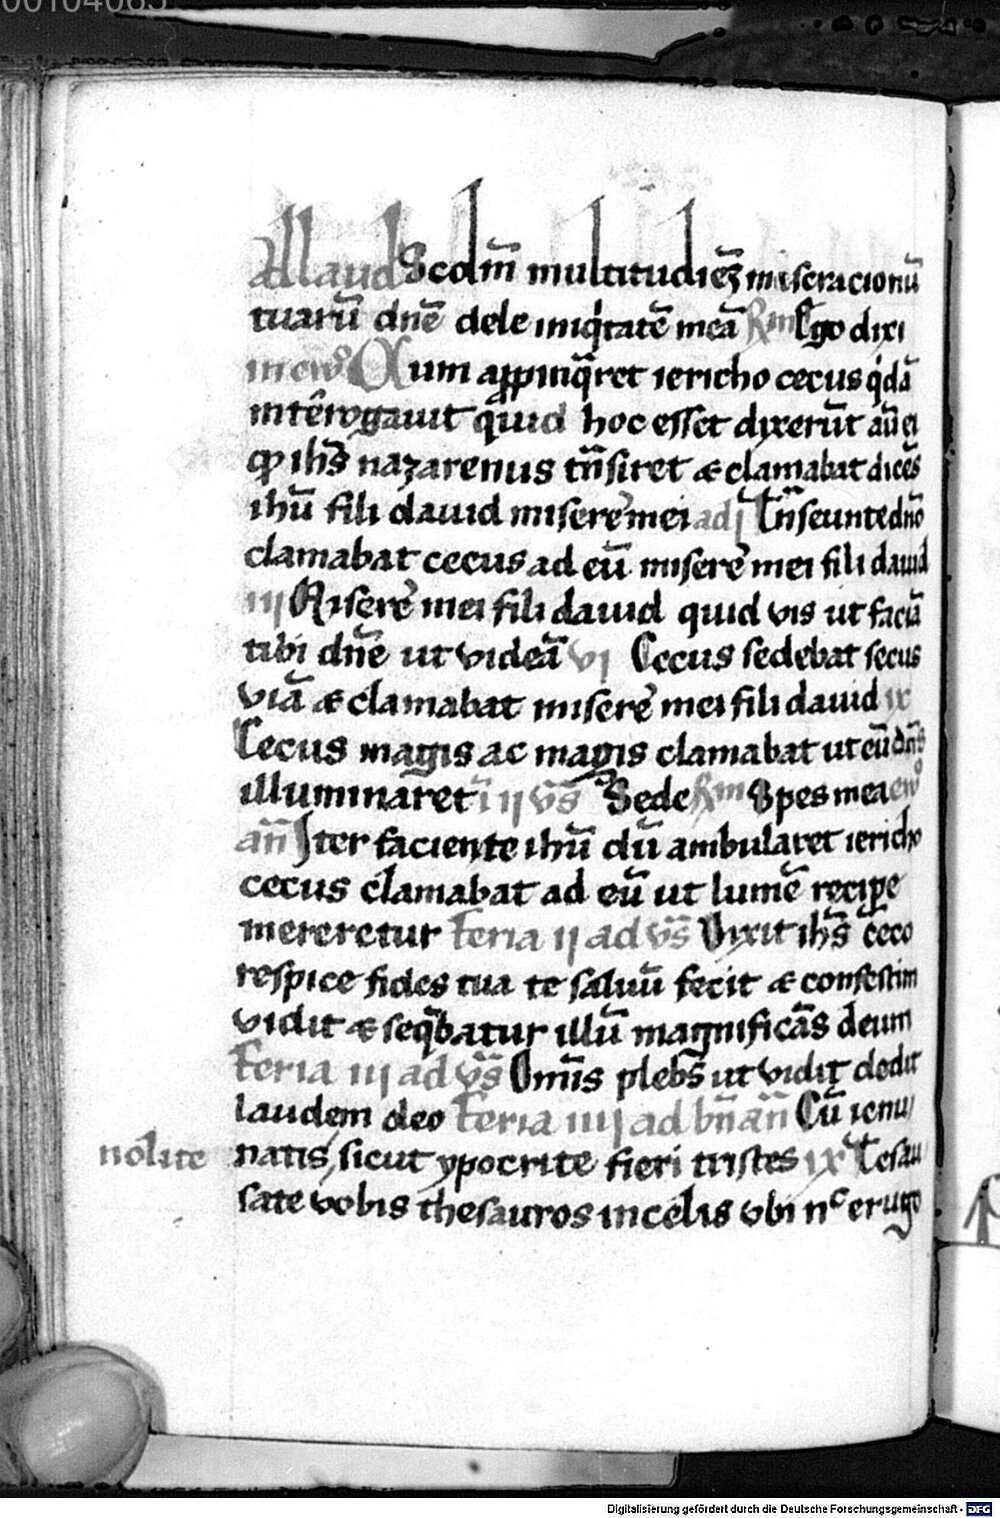 Ad laud Scdm multitudiez miseracionū
tuarū dnē dele iniqitatē meā Rm Ego dixi
in ewᵒ Cum appinq̄ret iericho cecus qdā
intērogauit quid hoc esset dixerūt aū ei
qp ihs̄ nazarenus tn̄siret & clamabat dicēs
ihū fili dauid miserē mei ad j Tn̄seunte dnō
clamabat cecus ad eū miserē mei fili dauid
iij Miserē mei fili dauid quid vis ut faciā
tibi dnē ut videā vj Cecus sedebat secus
viā & clamabat miserē mei fili dauid ix
Cecus magis ac magis clamabat ut eū dn̄s
illuminaret i ij vs̄ Sede Rm Spes mea ewᵒ
an̄ Iter faciente ihū dū ambularet iericho
cecus clamabat ad eū ut lumē recipe
mereretur feria ij ad vs̄ Dixit ihs̄ ceco
respice fides tua te saluū fecit & confestim
vidit & seq̄batur illū magnificās deum
feria iij ad vs̄ Omīs plebs ut vidit dedit
laudem deo feria iiij ad bn̄ an̄ Cū ieiu
nolite natis sicut ypocrite fieri tristes ix Tesau
sate vobis thesauros in celis vbi nᶜ erugo
Digitalisierung gefördert durch die Deutsche Forschungsgemeinschaft - DFG